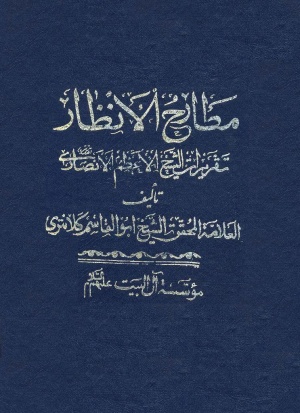 مطارح الأنظار
تقريرات الشيخ الأعظم الأنصاري
تأليف
العلامة المحقق الشيخ ابو القاسم كلانتري
مؤسسة آل البيت عليهم السلام